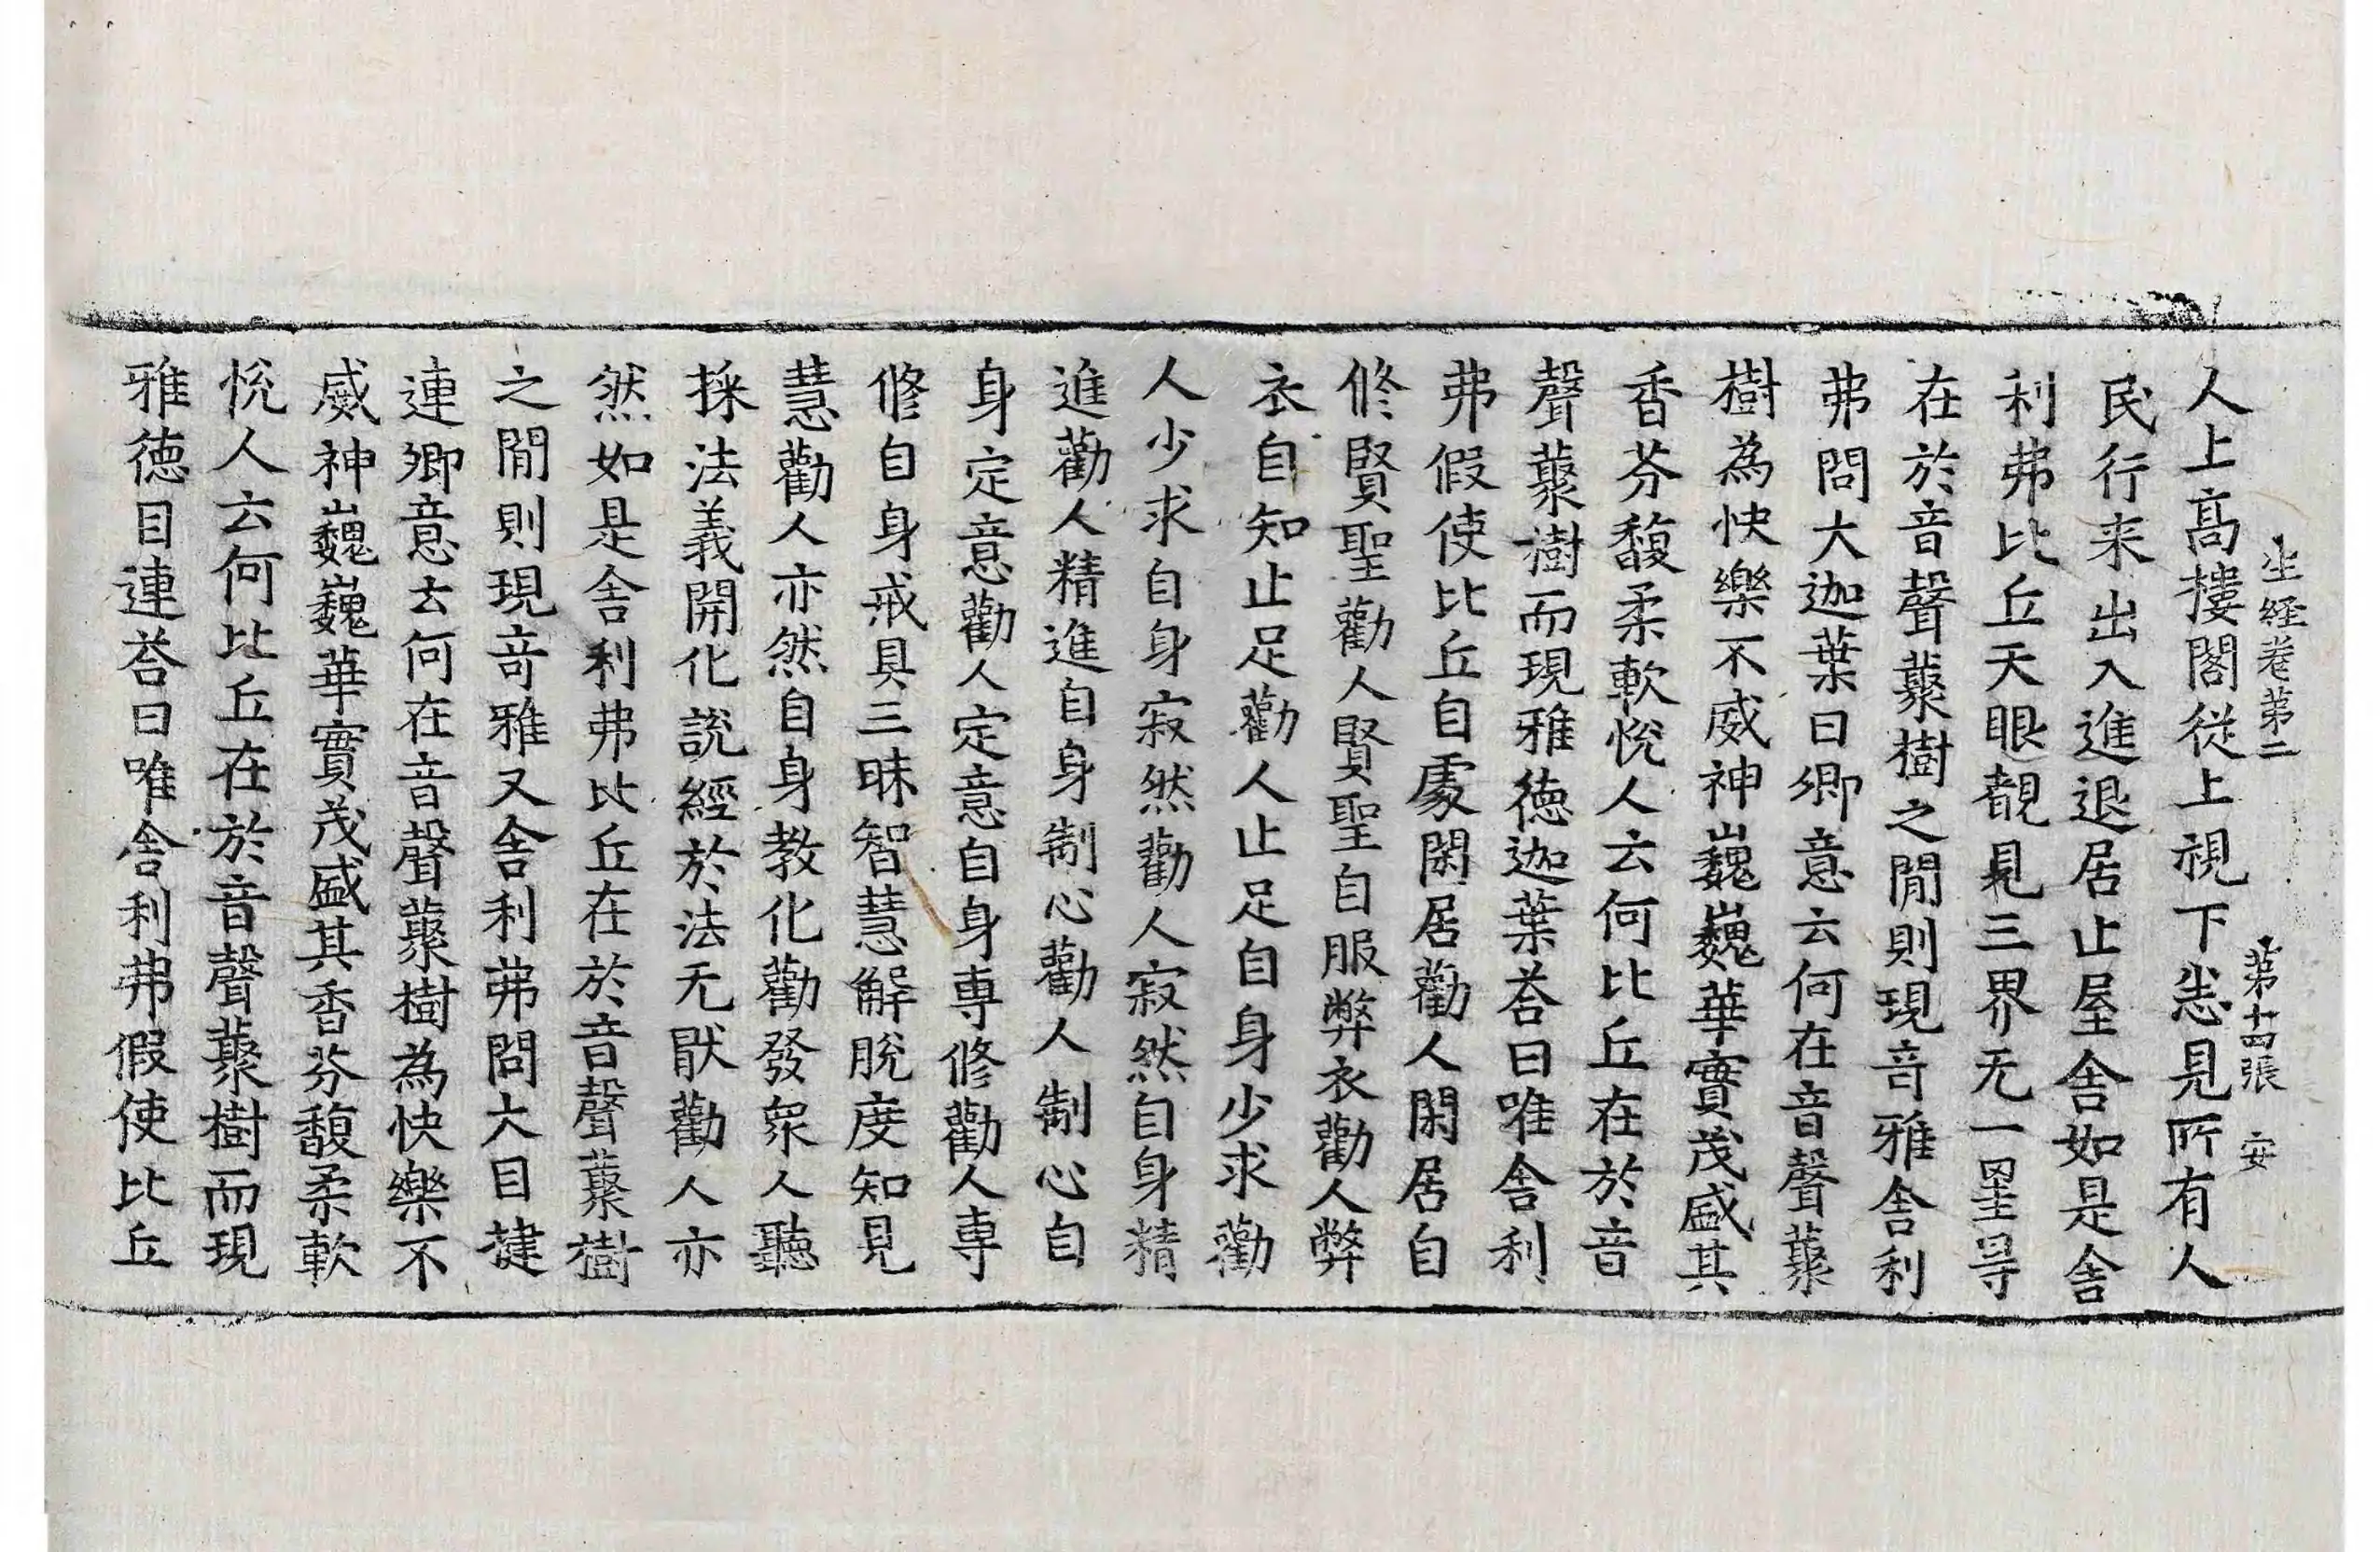 生經卷第二　第十四張　安
人上高樓閣從上視下悉見所有人
民行来出入進退居止屋舍如是舍
利弗比丘天眼覩見三界无一罣㝵
在於音聲藂樹之閒則現竒雅舍利
弗問大迦葉曰卿意云何在音聲藂
樹為快樂不威神巍巍華實茂盛其
香芬馥柔軟悅人云何比丘在於音
聲藂樹而現雅德迦葉荅曰唯舍利
弗假使比丘自處閑居勸人閑居自
修賢聖勸人賢聖自服弊衣勸人弊
衣自知止足勸人止足自身少求勸
人少求自身寂然勸人寂然自身精
進勸人精進自身制心勸人制心自
身定意勸人定意自身専修勸人専
修自身戒具三昧智慧解脫度知見
慧勸人亦然自身教化勸發衆人聽
採法義開化說經於法无猒勸人亦
然如是舍利弗比丘在於音聲藂樹
之閒則現竒雅又舍利弗問大目揵
連卿意云何在音聲藂樹為快樂不
威神巍巍華實茂盛其香芬馥柔軟
悅人云何比丘在於音聲藂樹而現
雅德目連荅曰唯舍利弗假使比丘